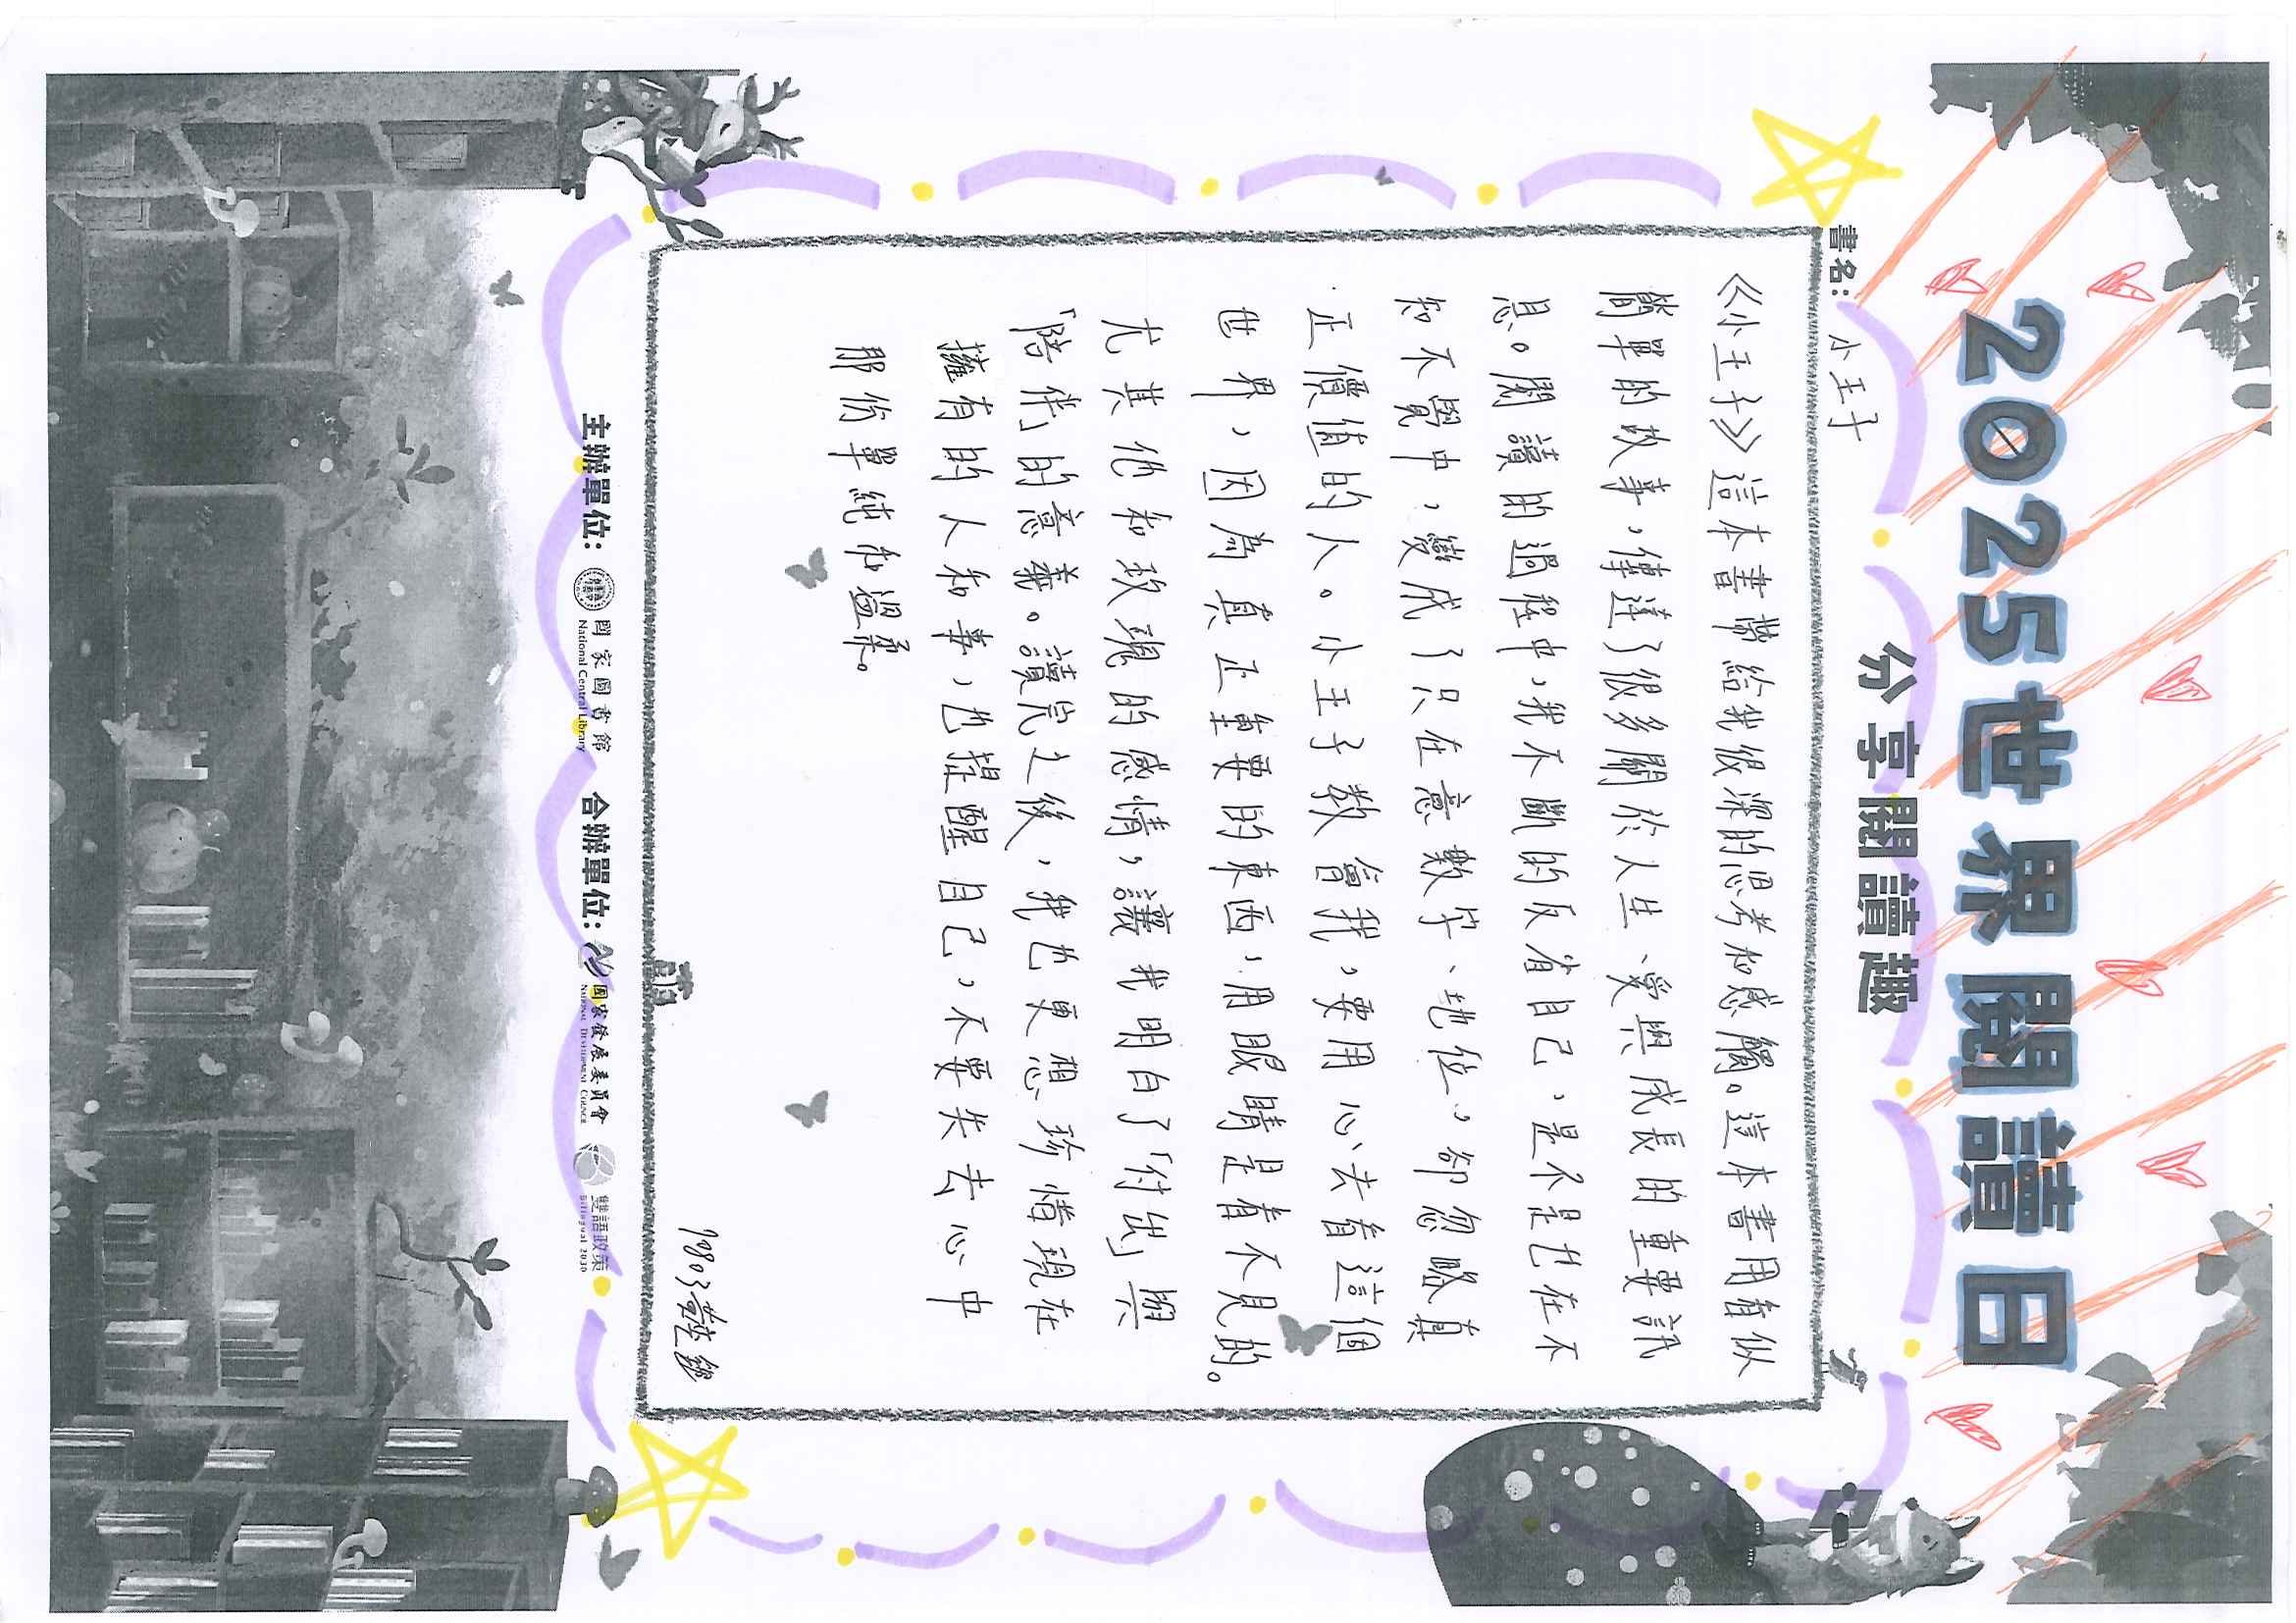 2025世界閱讀日
分享閱讀趣
書名：小王子
《小王子》這本書帶給我很深的思考和感觸。這本書用看似
簡單的故事，傳達了很多關於人生、愛與成長的重要訊
息。閱讀的過程中，我不斷的反省自己，是不是也在不
知不覺中，變成了只在意數字、地位，卻忽略真
正價值的人。小王子教會我，要用心去看這個
世界，因為真正重要的東西，用眼睛是看不見的。
尤其他和玫瑰的感情，讓我明白了「付出」與
「陪伴」的意義。讀完之後，我也更想珍惜現在
擁有的人和事，也提醒自己，不要失去心中
那份單純和溫柔。
主辦單位：國家圖書館 National Central Library 合辦單位：國家發展委員會 National Development Council 雙語政策 Bilingual 2030